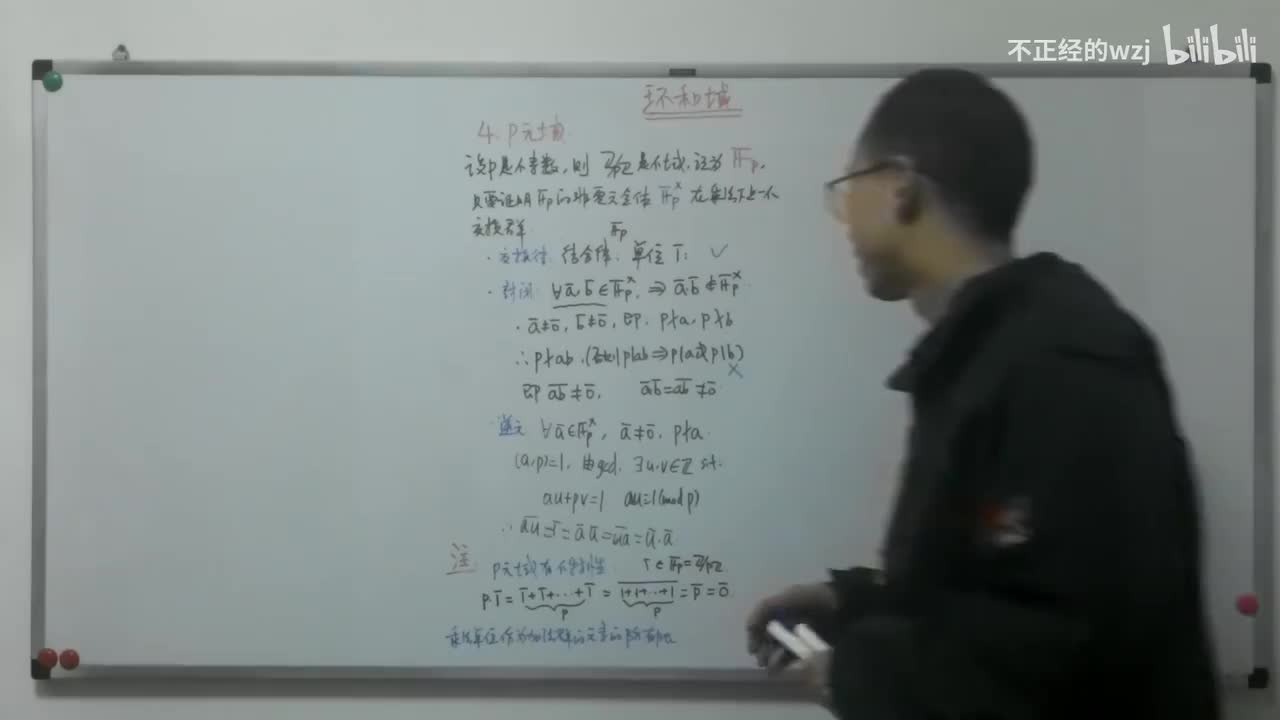 不正经的wzj bilibili
环和域
4. p元域
设p是个素数,则 ℤ/pℤ 是个域,记为 𝔽p.
只要证明 𝔽p的非零元全体 𝔽p^× 在乘法下是一个
交换群. 𝔽p
· 交换律. 结合律. 单位 1̄: ✓
· 封闭. ∀ā,b̄∈𝔽p^×, ⇒ ā·b̄∈𝔽p^×.
· ā≠0̄, b̄≠0̄, 即. p∤a, p∤b
∴ p∤ab. (否则 p|ab ⇒ p|a或p|b) ×
即 \overline{ab}≠0̄, āb̄=\overline{ab}≠0̄
· 逆元 ∀ā∈𝔽p^×, ā≠0̄. p∤a.
(a,p)=1, 由gcd, ∃u,v∈ℤ st.
au+pv=1 au≡1(mod p)
∴ \overline{au}=1̄=āū=\overline{ua}=ū·ā
注 p元域有个特性 1̄∈𝔽p=ℤ/pℤ
p·1̄=1̄+1̄+···+1̄=\overline{1+1+···+1}=p̄=0̄.
p p
乘法单位作为加法群的元素的阶有限